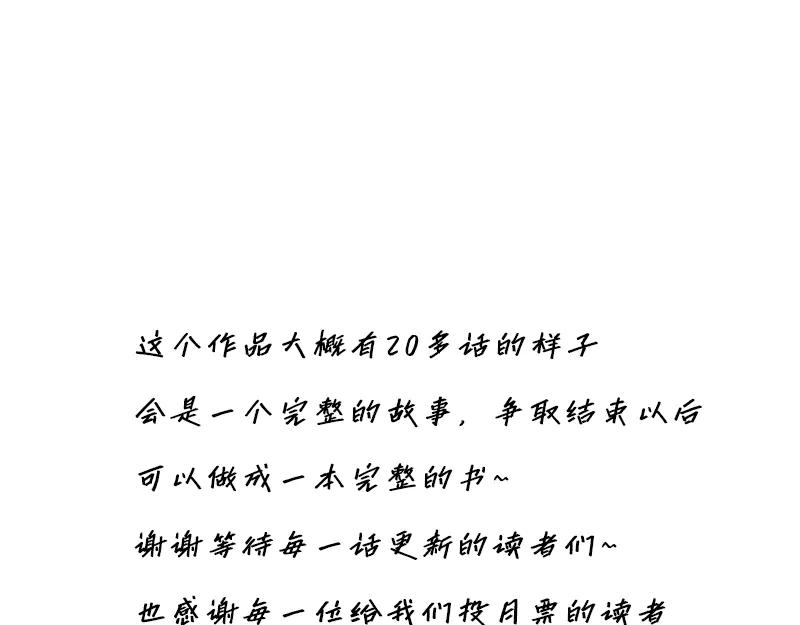 这个作品大概有20多话的样子
会是一个完整的故事，争取结束以后
可以做成一本完整的书~
谢谢等待每一话更新的读者们~
也感谢每一位给我们投月票的读者